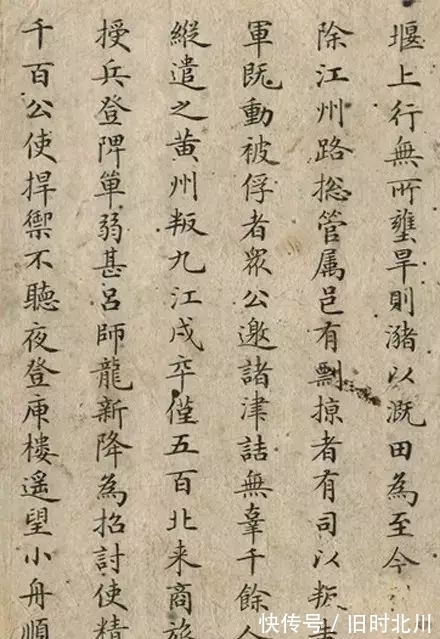 堰上行無所壅旱則瀦以溉田為至今
除江州路捴管属邑有剽掠者有司以叛
軍既動被俘者眾公邀諸津詰無辜千餘人
縱遣之黃州叛九江戍卒僅五百北来商旅
授兵登陴單弱甚呂師龍新降為招討使精
千百公使捍禦不聽夜登庾樓遥望小舟順
快传号/旧时北川